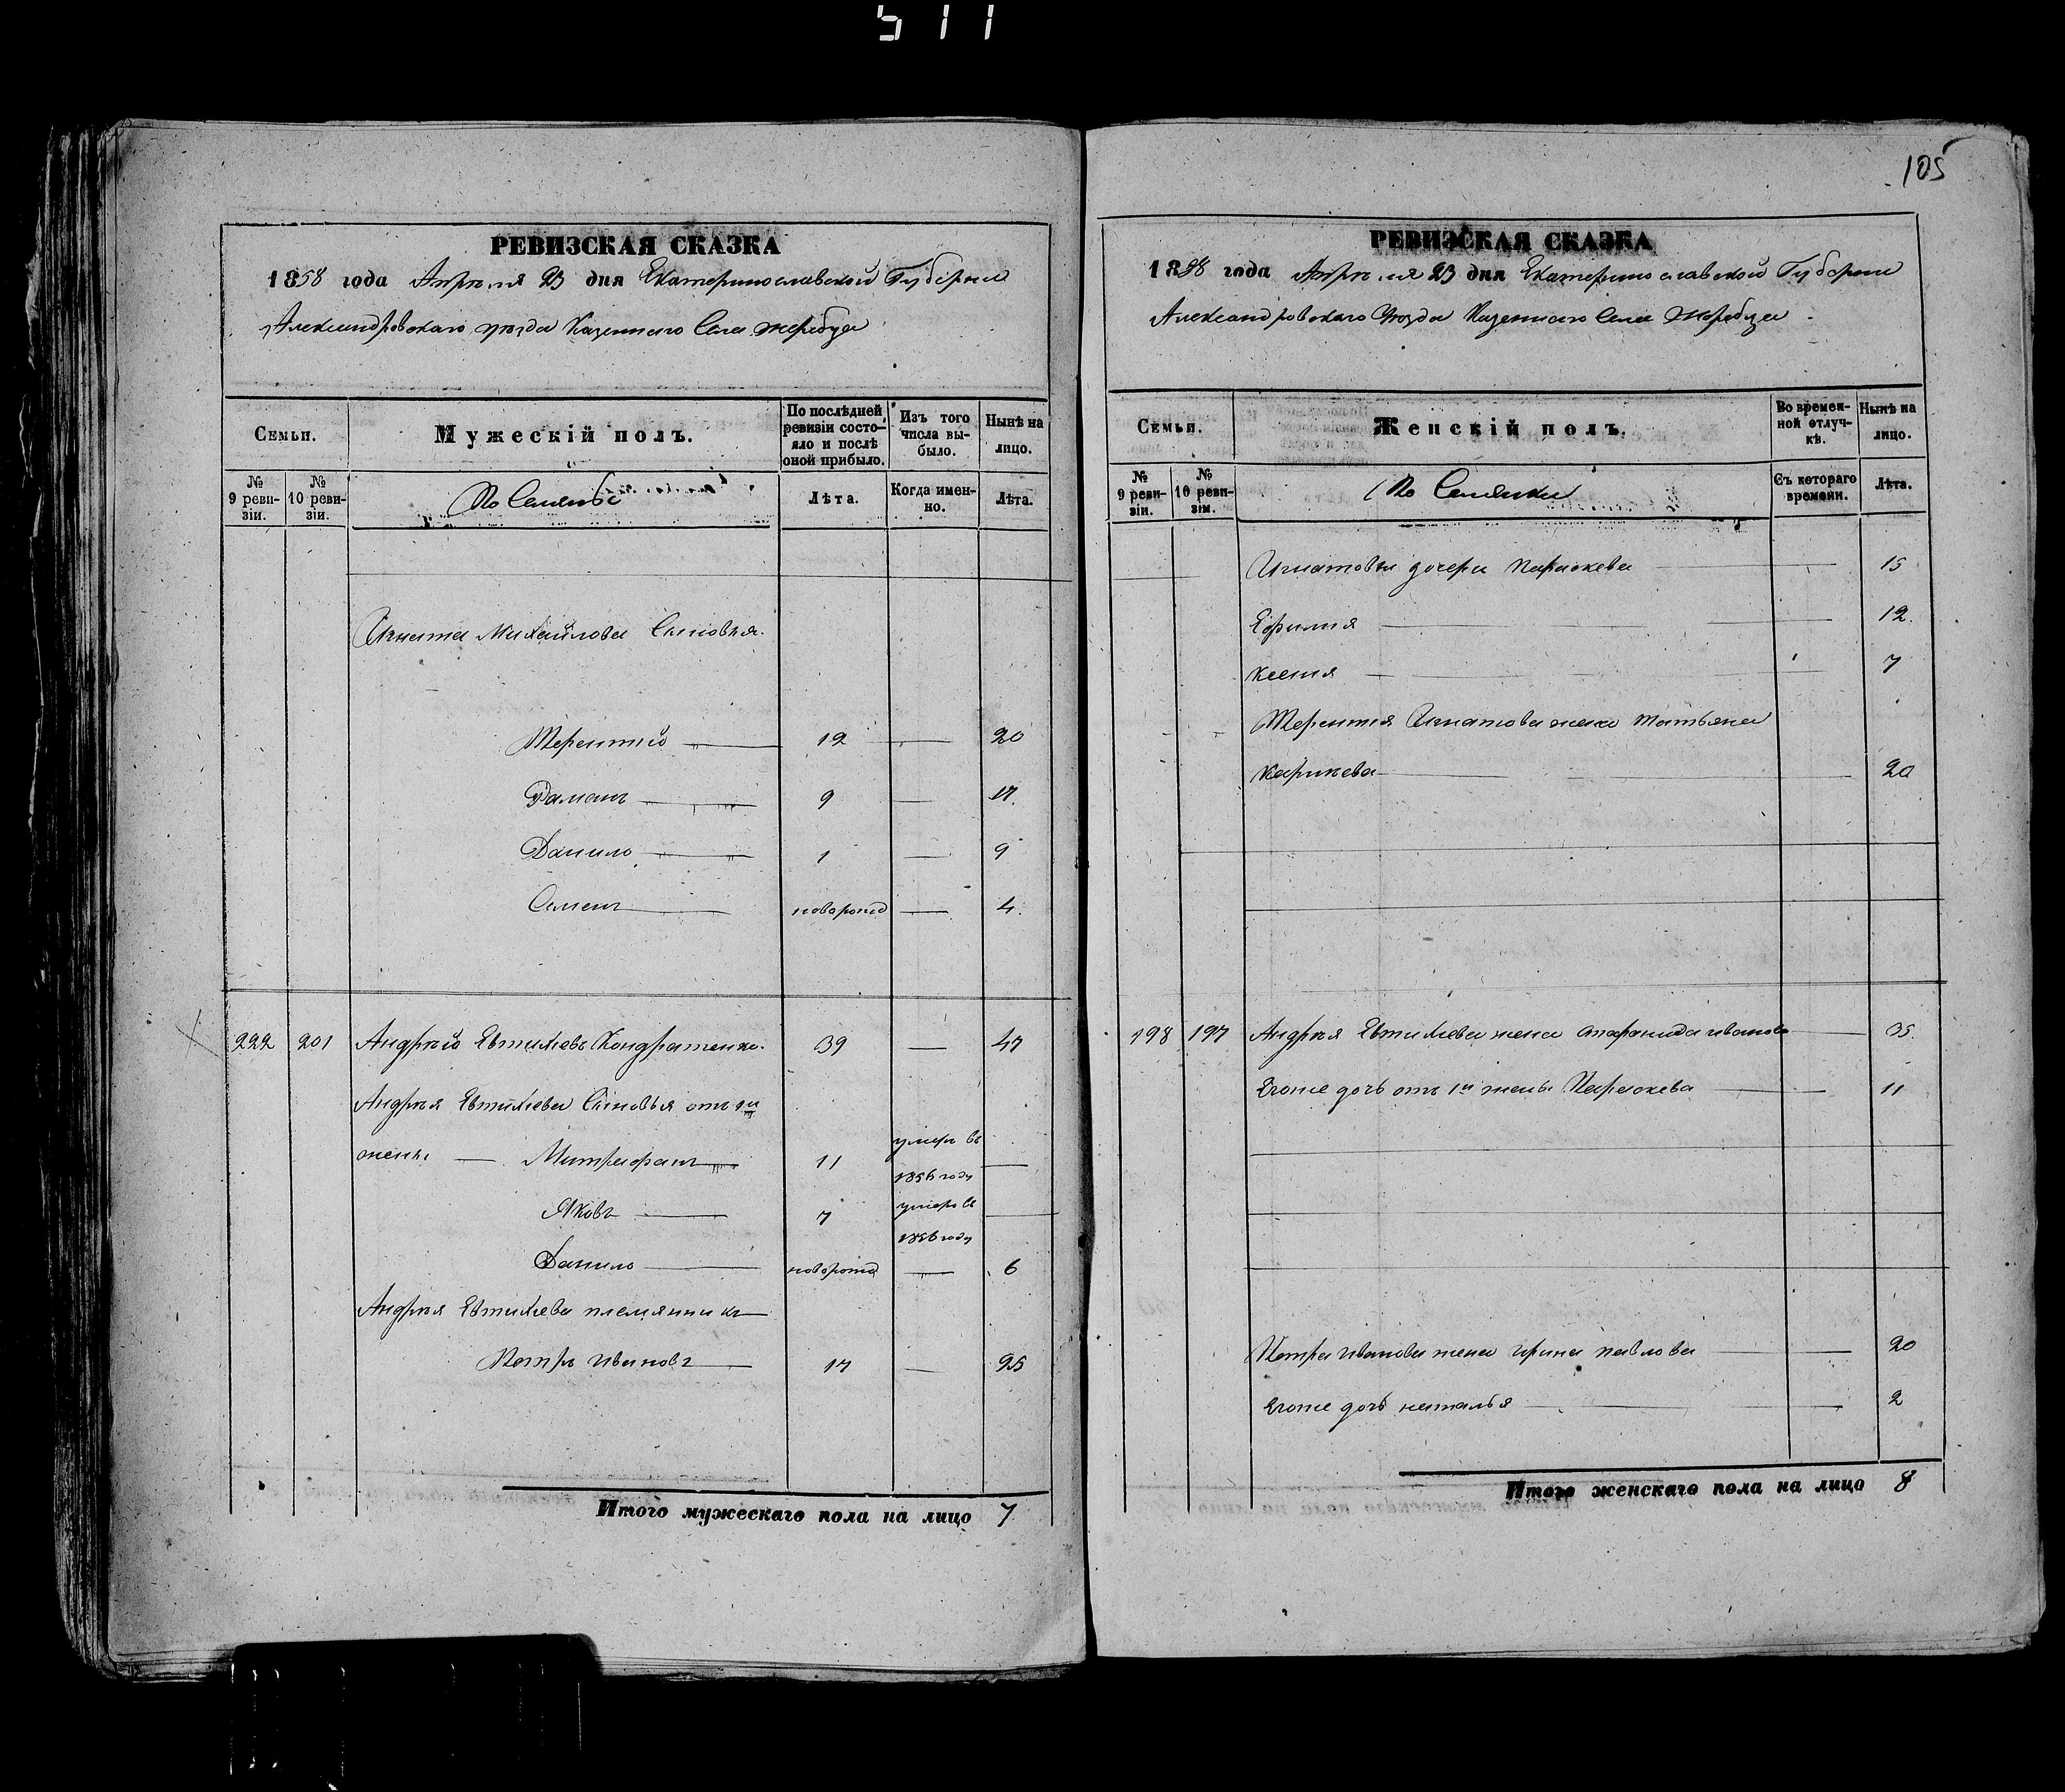 511
105
РЕВИЗСКАЯ СКАЗКА
1858 года Апреля 23 дня Екатеринославской Губернии
Александровскаго уезда Казеннаго Села Жеребца
Семьи.
Мужескій полъ.
По послѣдней ревизіи состояло и послѣ оной прибыло.
Изъ того числа выбыло.
Нынѣ на лицо.
№ 9 ревизіи.
№ 10 ревизіи.
Лѣта.
Когда именно.
Лѣта.
Игната Михайлова Сыновья.
Терентий 12 — 20
Раманъ 9 — 17.
Данило 1 — 9
Семенъ новорожд — 4.
222 201 Андрѣй Евтихіевъ Кондратенко. 39 — 47
Андрѣя Евтихіева Сыновья отъ
жены — Митрофанъ 11 умеръ въ 1856 году —
Яковъ 7 умеръ въ 1856 году —
Данило новорожд — 6
Андрѣя Евтихіева племянникъ
Петръ Ивановъ 17 — 25
Итого мужескаго пола на лицо 7
РЕВИЗСКАЯ СКАЗКА
1858 года Апрѣля 23 дня Екатеринославской Губернии
Александровскаго Уезда Казеннаго Села Жеребца
Семьи.
Женскій полъ.
Во временной отлучкѣ.
Нынѣ на лицо.
№ 9 ревизіи.
№ 10 ревизіи.
Съ котораго времени.
Лѣта.
Игнатовы дочери Параскева — 15
Ефимия — 12.
Ксения — 7
Терентия Игнатова жена Татьяна
— 20
198 197 Андрѣя Евтихіева жена Иванова — 35.
Егоже дочь отъ 1й жены Параскева — 11
Петра Иванова жена Ирина Павлова — 20
Егоже дочь Наталья — 2
Итого женскаго пола на лицо 8